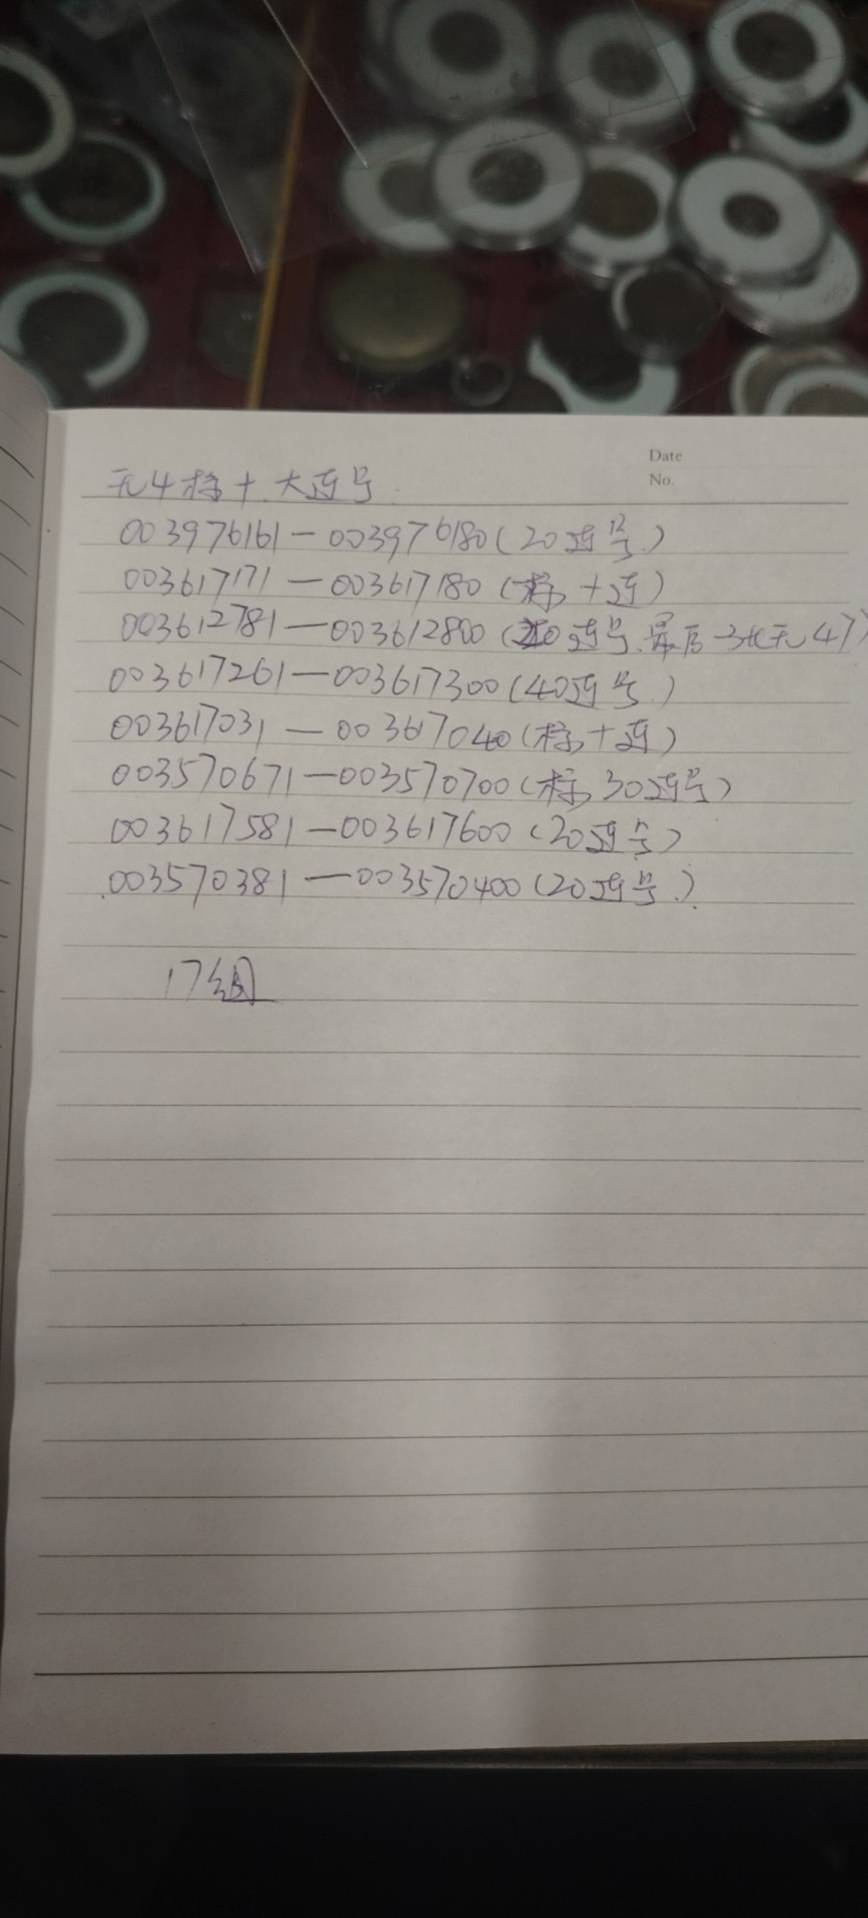 Date
No.
无4标十.大连号
003976161—003976180(20连号)
003617171—003617180(标十连)
003612781—003612800(20连号.最后3张无47)
003617261—003617300(40连号)
003617031—003617040(标十连)
003570671—003570700(标30连号)
003617581—003617600(20连号)
003570381—003570400(20连号)
17组